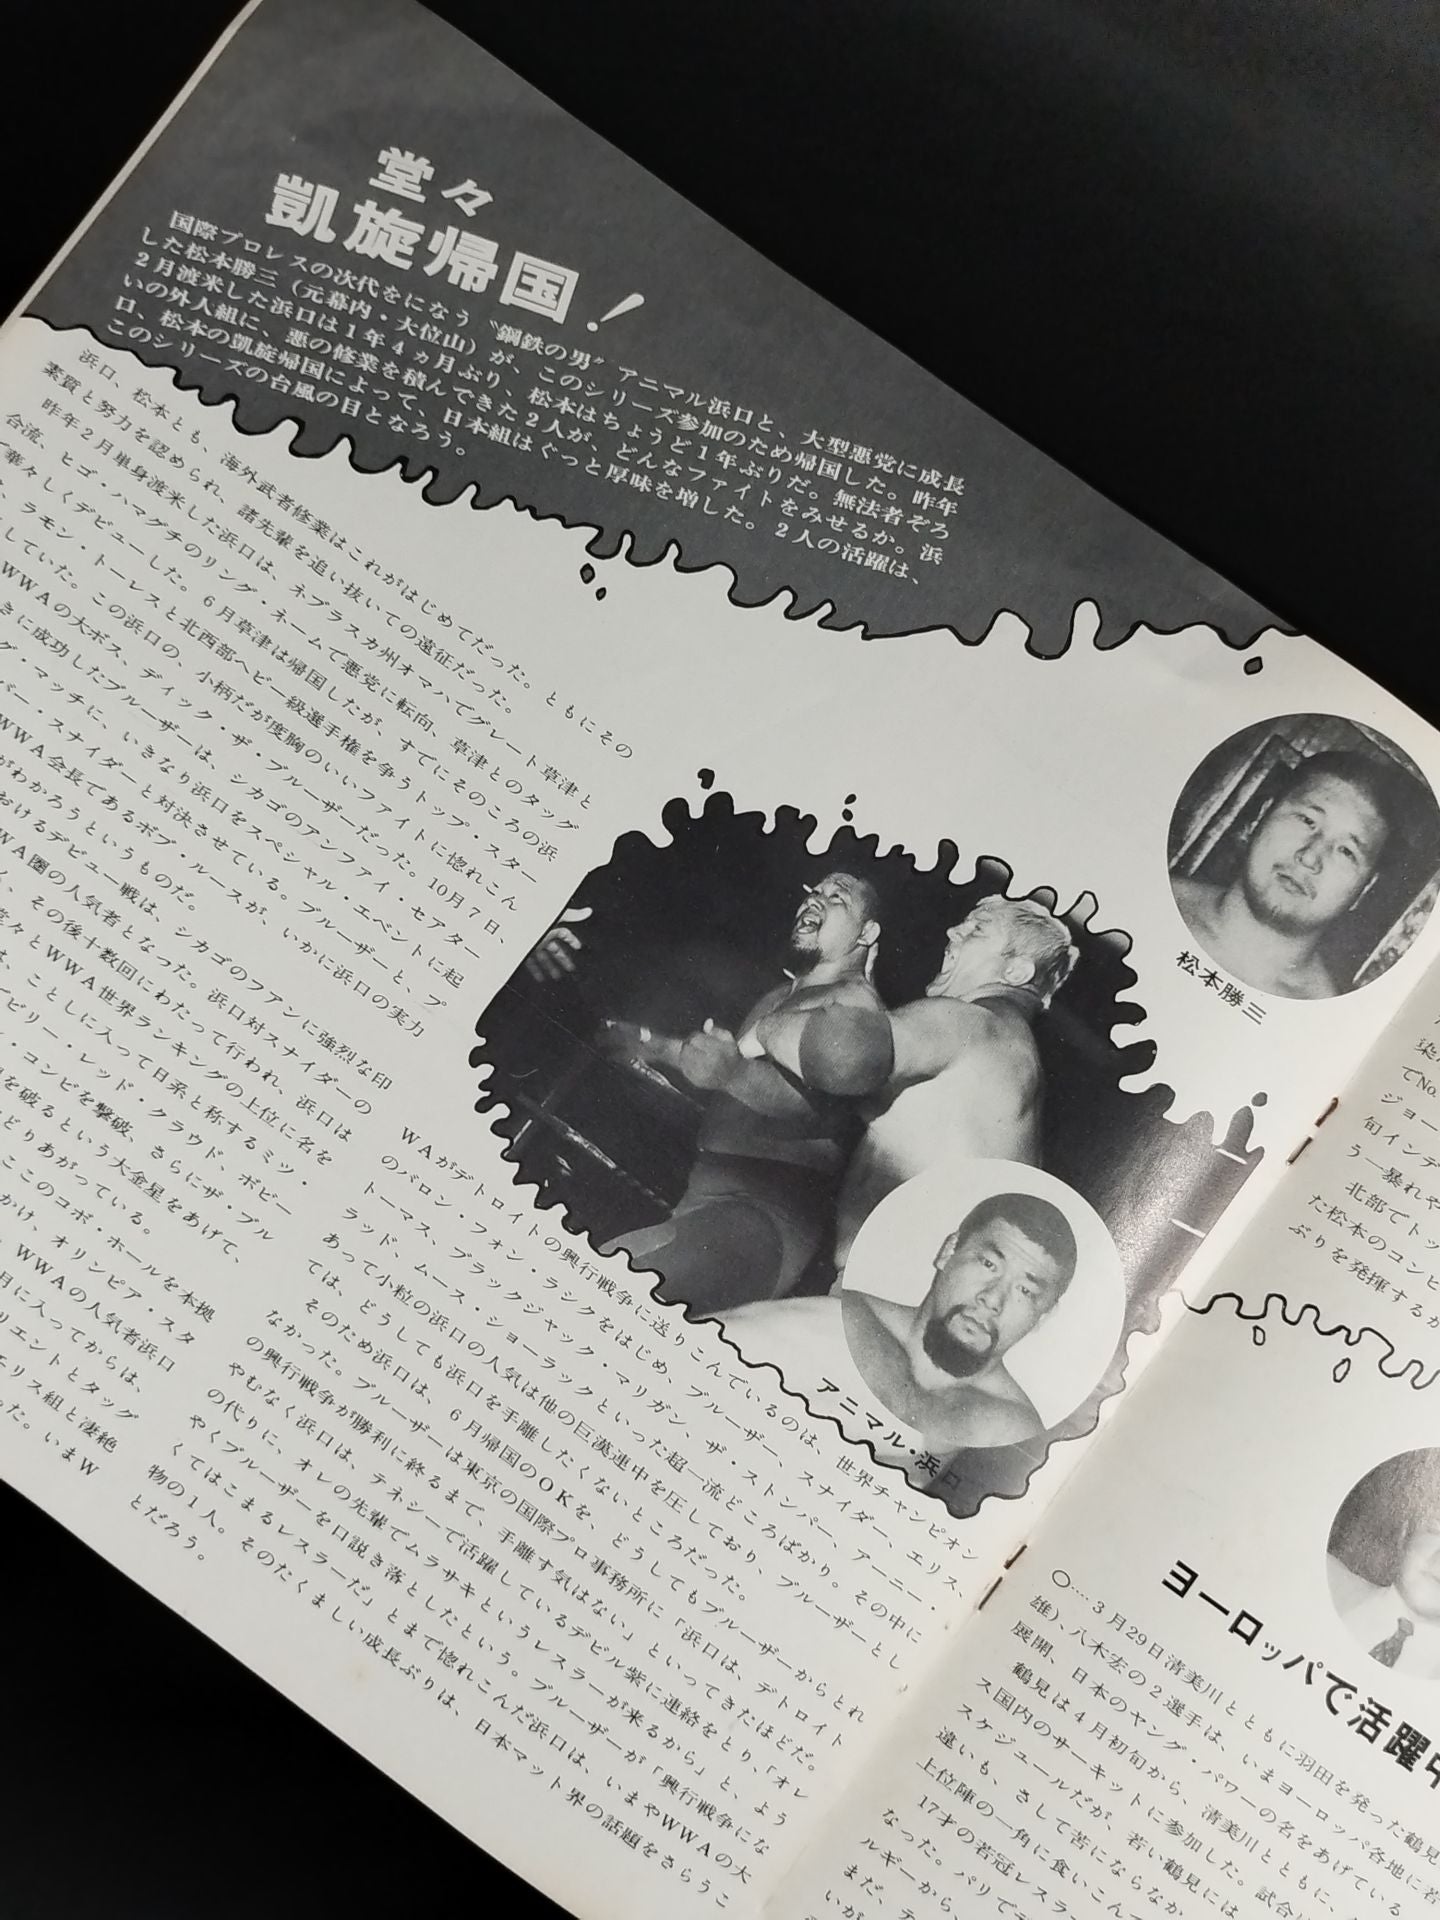 堂々
凱旋帰国！
国際プロレスの次代をになう〝鋼鉄の男〟アニマル浜口と、大型悪党に成長
した松本勝三（元幕内・大位山）が、このシリーズ参加のため帰国した。昨年
2月渡米した浜口は1年4ヵ月ぶり、松本はちょうど1年ぶりだ。無法者ぞろ
いの外人組に、悪の修業を積んできた2人が、どんなファイトをみせるか。浜
口、松本の凱旋帰国によって、日本組はぐっと厚味を増した。2人の活躍は、
このシリーズの台風の目となろう。
浜口、松本とも、海外武者修業はこれがはじめてだった。ともにその
素質と努力を認められ、諸先輩を追い抜いての遠征だった。
昨年2月単身渡米した浜口は、ネブラスカ州オマハでグレート草津と
合流、ヒゴ・ハマグチのリング・ネームで悪党に転向、草津とのタッグ
華々しくデビューした。6月草津は帰国したが、すでにそのころの浜
ラモン・トーレスと北西部ヘビー級選手権を争うトップ・スター
していた。この浜口の、小柄だが度胸のいいファイトに惚れこん
WWAの大ボス、ディック・ザ・ブルーザーだった。10月7日、
きに成功したブルーザーは、シカゴのアンファイ・セアター
グ・マッチに、いきなり浜口をスペシャル・エベントに起
バー・スナイダーと対決させている。ブルーザーと、プ
WWA会長であるボブ・ルースが、いかに浜口の実力
がわかろうというものだ。
おけるデビュー戦は、シカゴのファンに強烈な印
WA圏の人気者となった。浜口対スナイダーの
、その後十数回にわたって行われ、浜口は
堂々とWWA世界ランキングの上位に名を
、ことしに入って日系と称するミツ・
ビリー・レッド・クラウド、ボビー
・コンビを撃破、さらにザ・ブル
を破るという大金星をあげて、
どりあがっている。
ここのコボ・ホールを本拠
かけ、オリンピア・スタ
WWAの人気者浜口
月に入ってからは、
リエントとタッグ
モリス組と凄絶
った。いまW
WAがデトロイトの興行戦争に送りこんでいるのは、世界チャンピオン
のバロン・フォン・ラシクをはじめ、ブルーザー、スナイダー、エリス、
トーマス、ブラックジャック・マリガン、ザ・ストンパー、アーニー・
ラッド、ムース・ショーラックといった超一流どころばかり。その中に
あって小粒の浜口の人気は他の巨漢連中を圧しており、ブルーザーとし
ては、どうしても浜口を手離したくないところだった。
そのため浜口は、6月帰国のOKを、どうしてもブルーザーからとれ
なかった。ブルーザーは東京の国際プロ事務所に「浜口は、デトロイト
の興行戦争が勝利に終るまで、手離す気はない」といってきたほどだ。
やむなく浜口は、テネシーで活躍しているデビル紫に連絡をとり、「オレ
の代りに、オレの先輩でムラサキというレスラーが来るから」と、よう
やくブルーザーを口説き落としたという。ブルーザーが「興行戦争にな
くてはこまるレスラーだ」とまで惚れこんだ浜口は、いまやWWAの大
物の1人。そのたくましい成長ぶりは、日本マット界の話題をさらうこ
とだろう。
松本勝三
アニマル・浜口
染
でNo.
ジョー
旬インデ
う一暴れや
北部でトッ
た松本のコンビ
ぶりを発揮するか
ヨーロッパで活躍中
○‥‥3月29日清美川とともに羽田を発った鶴見
雄)、八木宏の2選手は、いまヨーロッパ各地に若
展開、日本のヤング・パワーの名をあげている
鶴見は4月初旬から、清美川とともに、
ス国内のサーキットに参加した。試合
スケジュールだが、若い鶴見には
違いも、さして苦にならなか
上位陣の一角に食いこんで
17才の若冠レスラー
なった。パリでデ
ルギーから、
まだ、テ
いが